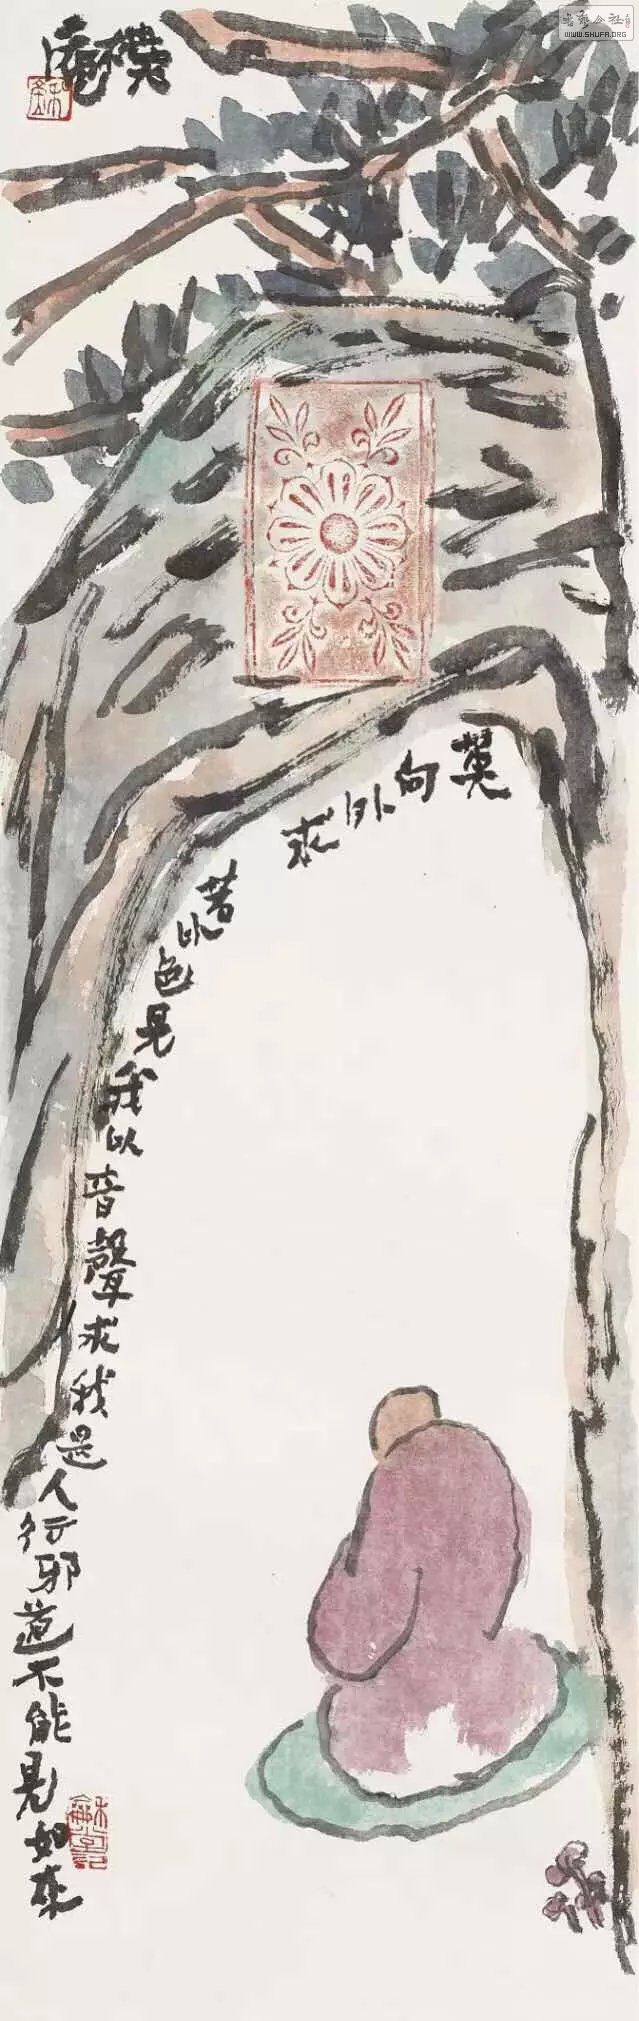 樸庵
书艺公社
WWW.SHUFA.ORG
莫向外求
若以色見我以音聲求我是人行邪道不能見如来